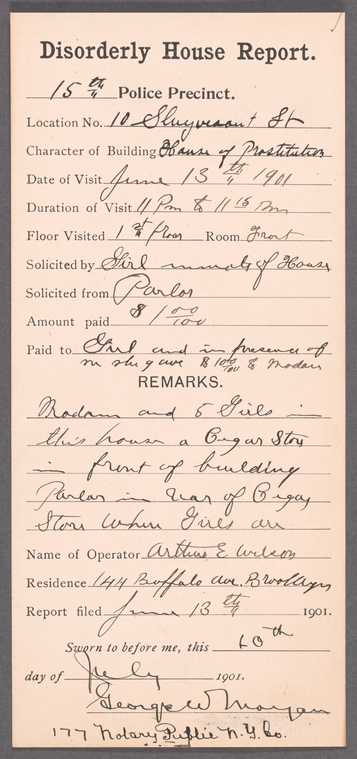 Disorderly House Report.
15th Police Precinct.
Location No. 10 Stuyvesant St
Character of Building House of Prostitution
Date of Visit June 13th 1901
Duration of Visit 11 Pm to 11 15 Pm
Floor Visited 1st floor Room Front
Solicited by Girl inmate of House
Solicited from Parlor
Amount paid $1 00/100
Paid to Girl and in presence of
me she gave $1 00/100 to Madam
REMARKS.
Madam and 5 Girls in
this house a Cegar Store
in front of building
Parlor in rear of Cegar
Store where Girls are
Name of Operator Arthur E Wilson
Residence 144 Buffalo ave. Brooklyn
Report filed June 13th 1901.
Sworn to before me, this 10th
day of July 1901.
George W Morgan
177 Notary Public N.Y. Co.